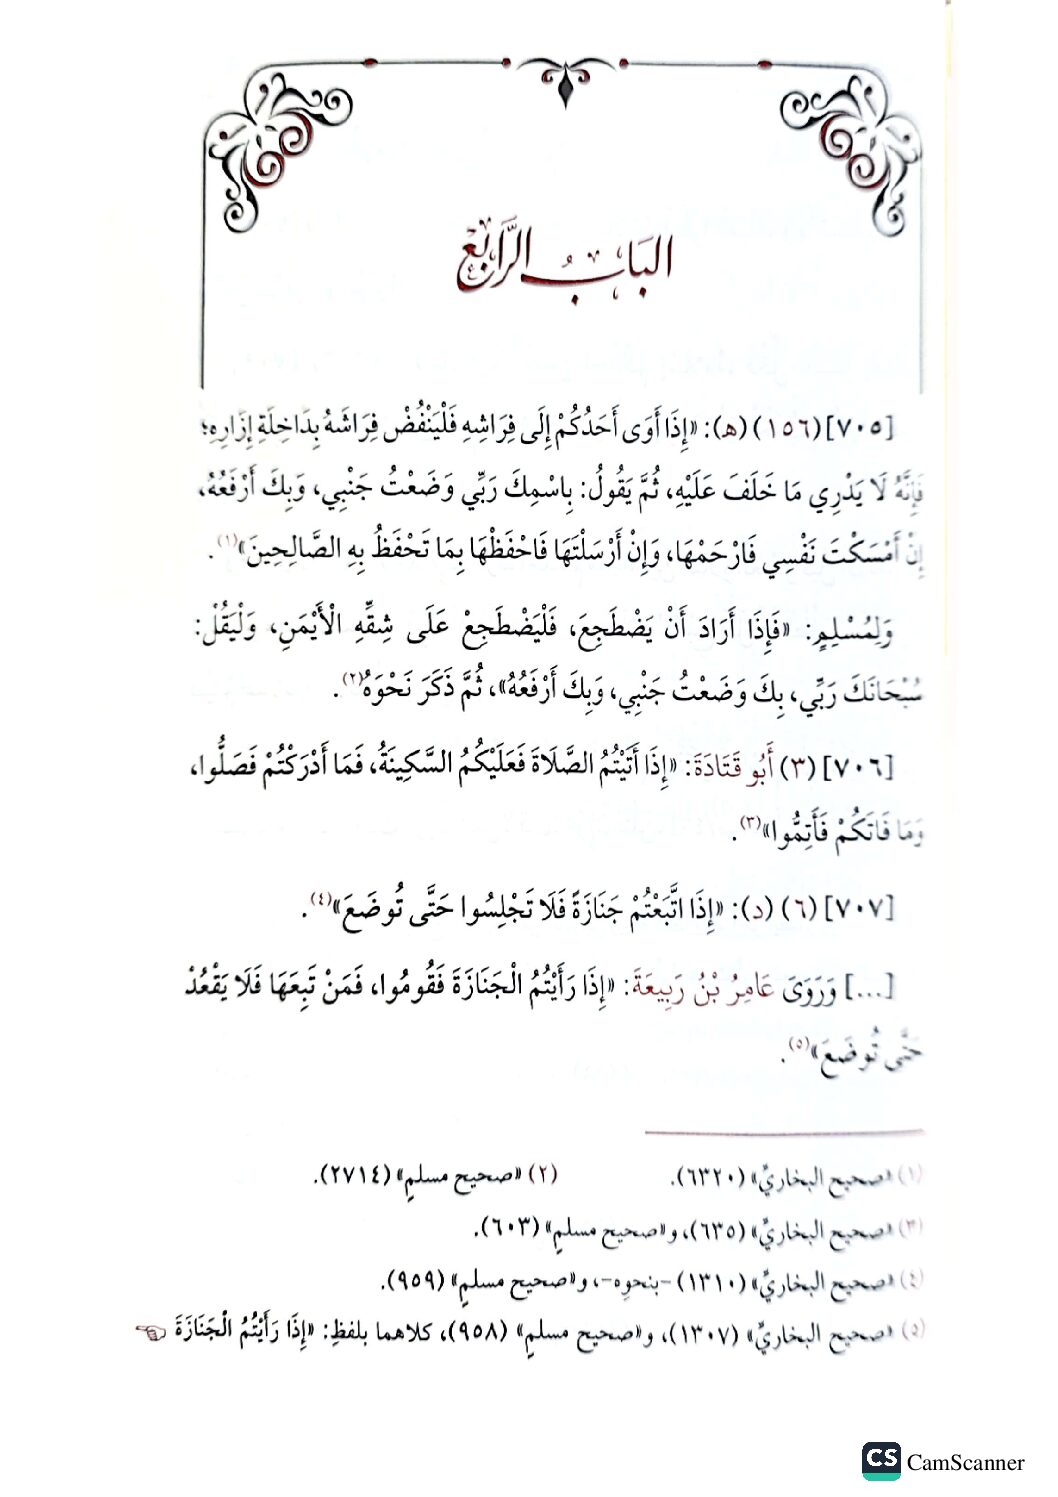 البَابُ الرَّابِعُ
[٧٠٥] (١٥٦) (هـ): «إِذَا أَوَى أَحَدُكُمْ إِلَى فِرَاشِهِ فَلْيَنْفُضْ فِرَاشَهُ بِدَاخِلَةِ إِزَارِهِ؛
فَإِنَّهُ لَا يَدْرِي مَا خَلَفَ عَلَيْهِ، ثُمَّ يَقُولُ: بِاسْمِكَ رَبِّي وَضَعْتُ جَنْبِي، وَبِكَ أَرْفَعُهُ،
إِنْ أَمْسَكْتَ نَفْسِي فَارْحَمْهَا، وَإِنْ أَرْسَلْتَهَا فَاحْفَظْهَا بِمَا تَحْفَظُ بِهِ الصَّالِحِينَ»(١).
وَلِمُسْلِمٍ: «فَإِذَا أَرَادَ أَنْ يَضْطَجِعَ، فَلْيَضْطَجِعْ عَلَى شِقِّهِ الْأَيْمَنِ، وَلْيَقُلْ:
سُبْحَانَكَ رَبِّي، بِكَ وَضَعْتُ جَنْبِي، وَبِكَ أَرْفَعُهُ»، ثُمَّ ذَكَرَ نَحْوَهُ(٢).
[٧٠٦] (٣) أَبُو قَتَادَةَ: «إِذَا أَتَيْتُمُ الصَّلَاةَ فَعَلَيْكُمُ السَّكِينَةُ، فَمَا أَدْرَكْتُمْ فَصَلُّوا،
وَمَا فَاتَكُمْ فَأَتِمُّوا»(٣).
[٧٠٧] (٦) (د): «إِذَا اتَّبَعْتُمْ جَنَازَةً فَلَا تَجْلِسُوا حَتَّى تُوضَعَ»(٤).
[...] وَرَوَى عَامِرُ بْنُ رَبِيعَةَ: «إِذَا رَأَيْتُمُ الْجَنَازَةَ فَقُومُوا، فَمَنْ تَبِعَهَا فَلَا يَقْعُدْ
حَتَّى تُوضَعَ»(٥).
(١) «صحيح البخاريِّ» (٦٣٢٠). (٢) «صحيح مسلمٍ» (٢٧١٤).
(٣) «صحيح البخاريِّ» (٦٣٥)، و«صحيح مسلمٍ» (٦٠٣).
(٤) «صحيح البخاريِّ» (١٣١٠) -بنحوِه-، و«صحيح مسلمٍ» (٩٥٩).
(٥) «صحيح البخاريِّ» (١٣٠٧)، و«صحيح مسلمٍ» (٩٥٨)، كلاهما بلفظِ: «إِذَا رَأَيْتُمُ الْجَنَازَةَ
CS CamScanner